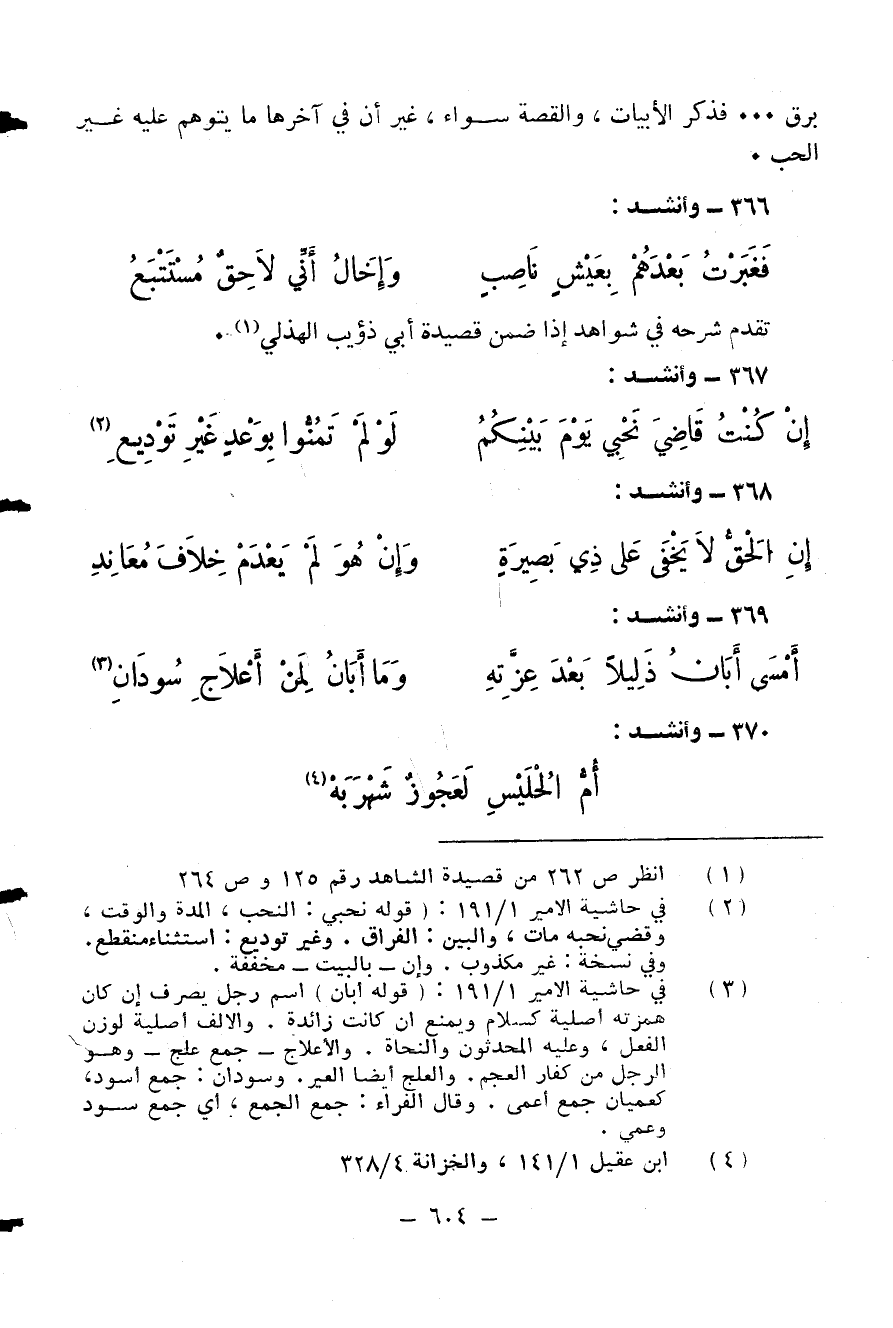 برق ٠٠٠ فذكر الأبيات ، والقصة سـواء ، غير أن في آخرها ما يتوهم عليه غـير
الحب ٠
٣٦٦ ـ وأنشـد :
فَغَبَرْتُ بَعْدَهُمْ بِعَيْشٍ نَاصِبٍ وَإِخَالُ أَنِّي لاَحِقٌ مُسْتَتْبَعُ
تقدم شرحه في شواهد إذا ضمن قصيدة أبي ذؤيب الهذلي(١) ٠
٣٦٧ ـ وأنشـد :
إِنْ كُنْتُ قَاضِيَ نَحْبِي يَوْمَ بَيْنِكُمُ لَوْ لَمْ تَمُنُّوا بِوَعْدٍ غَيْرِ تَوْدِيعِ(٢)
٣٦٨ ـ وأنشـد :
إِنِ الْحَقُّ لاَ يَخْفَى عَلى ذِي بَصِيرَةٍ وَإِنْ هُوَ لَمْ يَعْدَمْ خِلاَفَ مُعَانِدِ
٣٦٩ ـ وأنشـد :
أَمْسَى أَبَانُ ذَلِيلاً بَعْدَ عِزَّتِهِ وَمَا أَبَانُ لِمَنْ أَعْلاَجِ سُودَانِ(٣)
٣٧٠ ـ وأنشـد :
أُمُّ الْحُلَيْسِ لَعَجُوزٌ شَهْرَبَهْ(٤)
(١) انظر ص ٢٦٢ من قصيدة الشاهد رقم ١٢٥ و ص ٢٦٤
(٢) في حاشية الامير ١٩١/١ : ( قوله نحبي : النحب ، المدة والوقت ،
وقضى نحبه مات ، والبين : الفراق . وغير توديع : استثناء منقطع.
وفي نسخة : غير مكذوب . وإن ـ بالبيت ـ مخففة .
(٣) في حاشية الامير ١٩١/١ : ( قوله أبان ) اسم رجل يصرف إن كان
همزته أصلية كسلام ويمنع ان كانت زائدة . والالف أصلية لوزن
الفعل ، وعليه المحدثون والنحاة . والأعلاج ـ جمع علج ـ وهـو
الرجل من كفار العجم. والعلج أيضا العير. وسودان : جمع أسود،
كعميان جمع أعمى . وقال الفراء : جمع الجمع ، أي جمع سـود
وعمي .
(٤) ابن عقيل ١٤١/١ ، والخزانة ٣٢٨/٤
ـ ٦٠٤ ـ